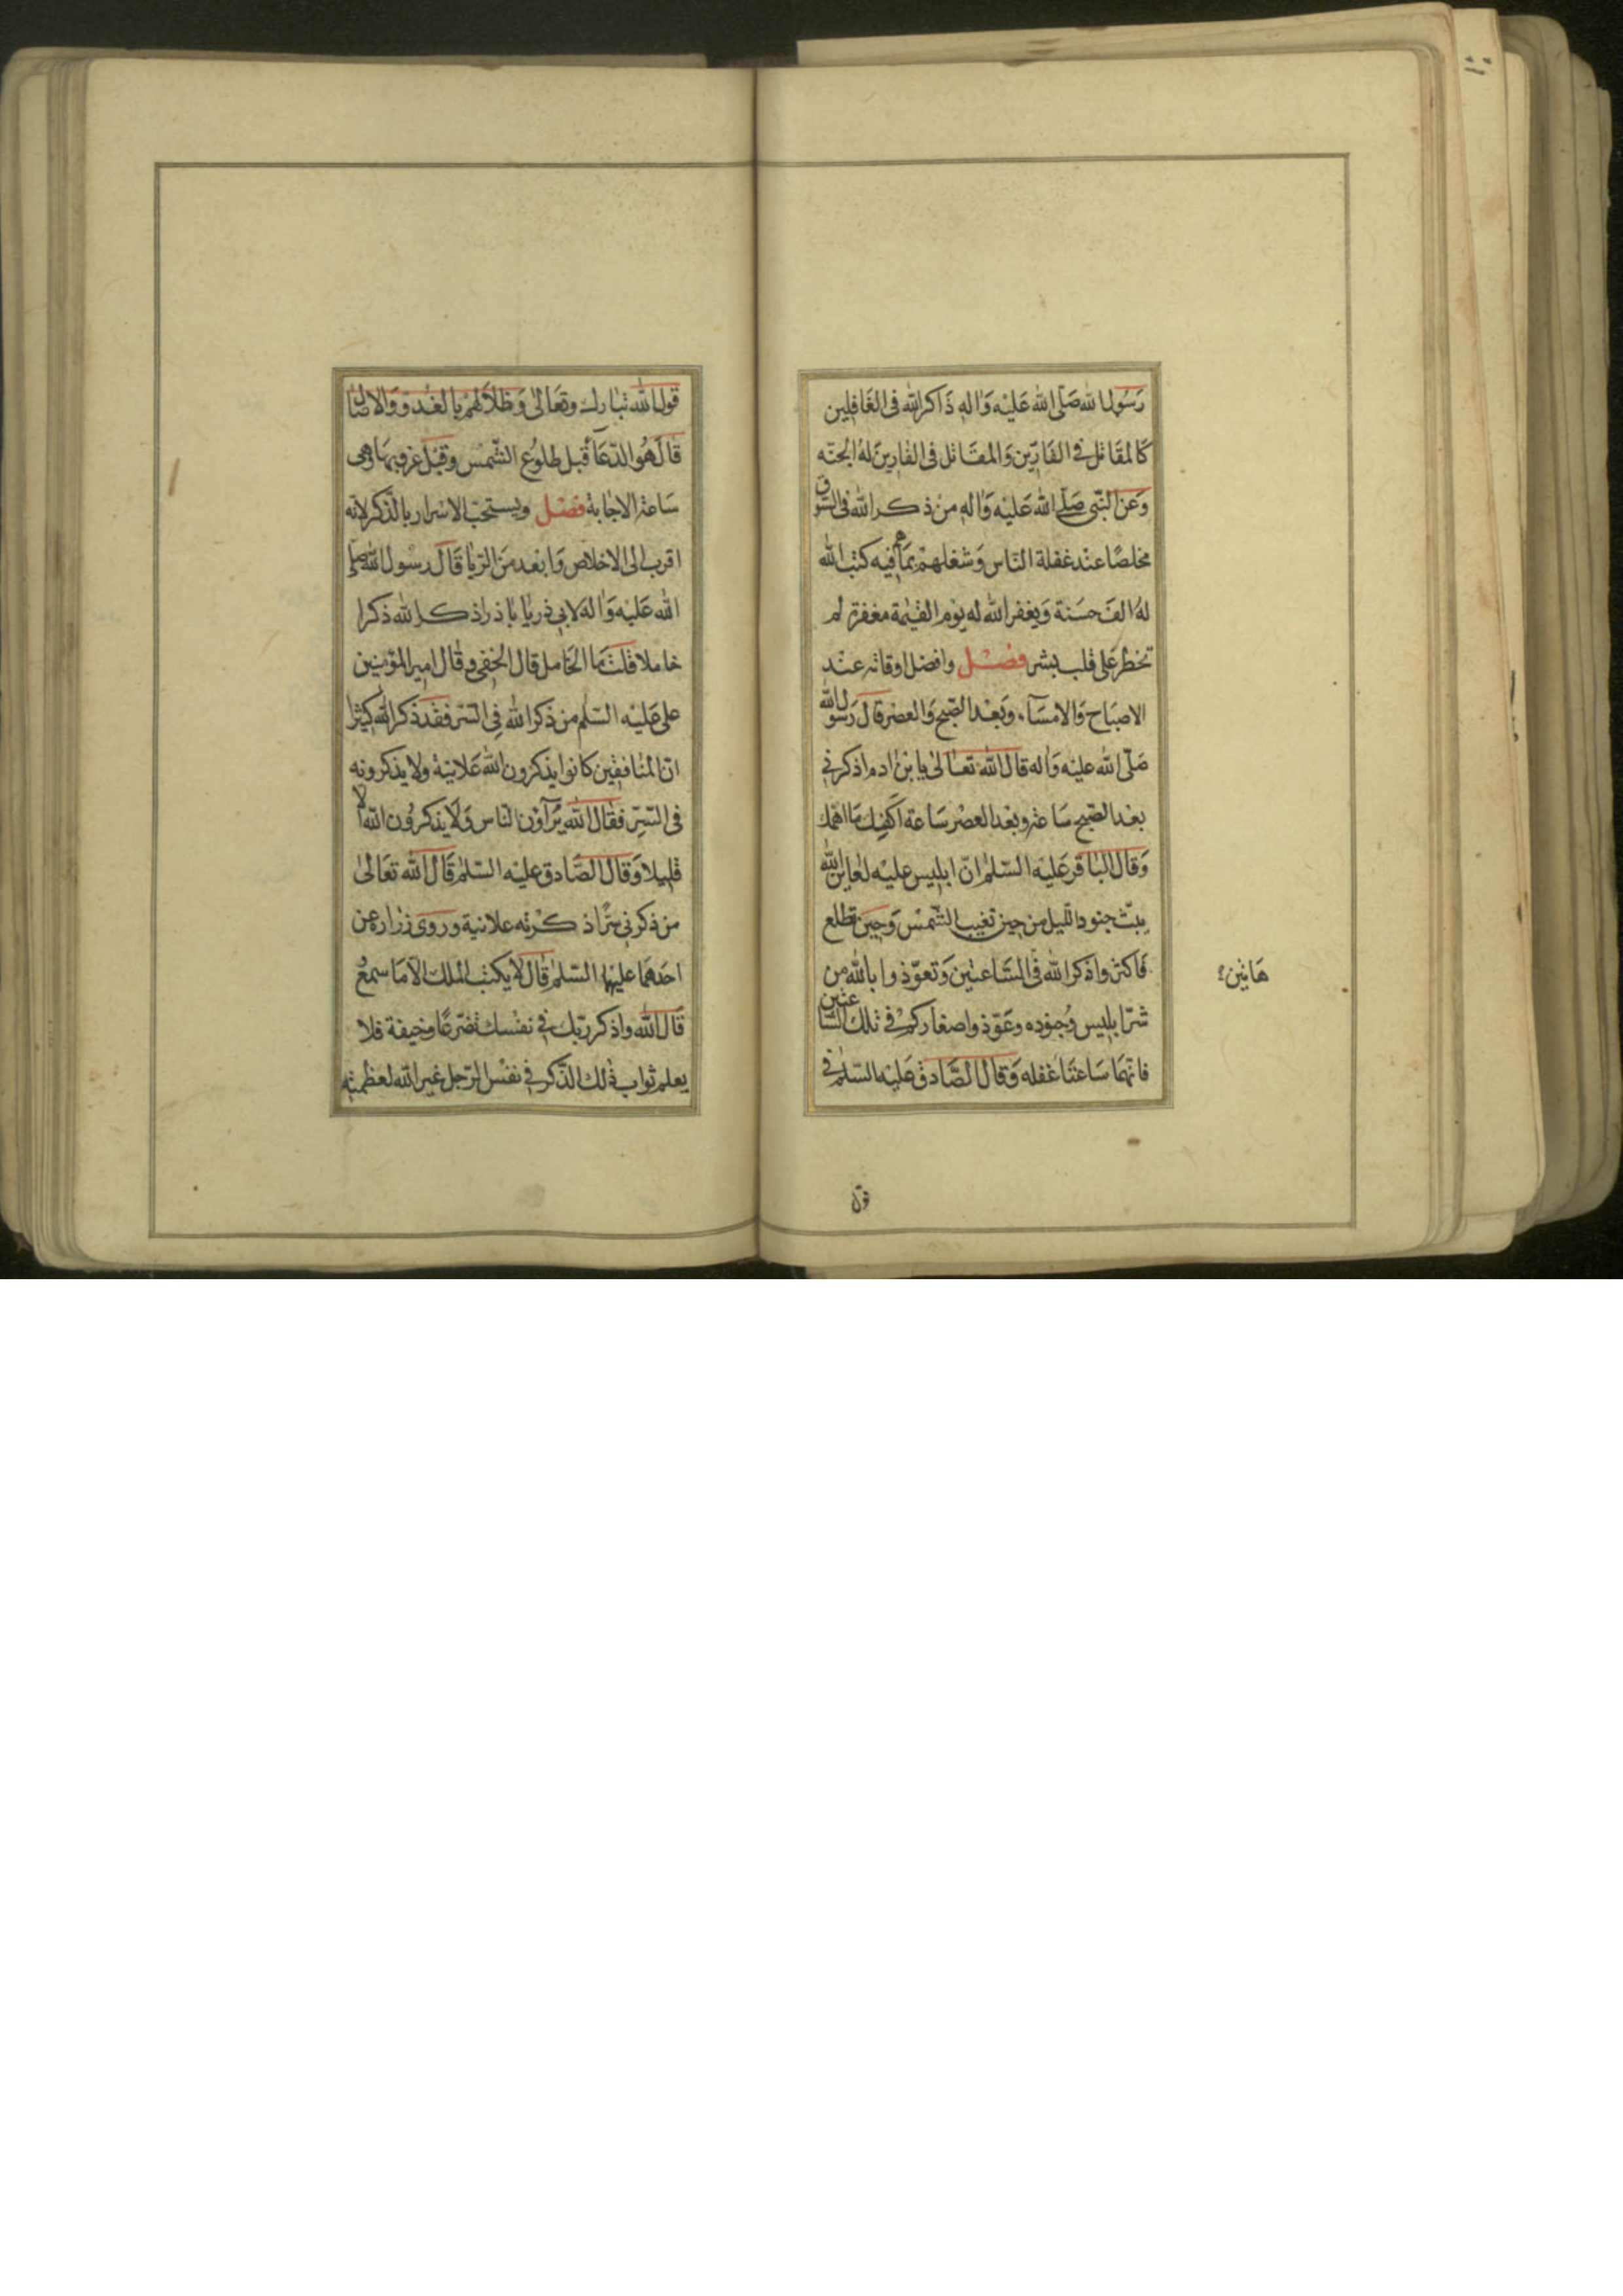 رَسُول الله صَلّى الله عَليْه وَاله ذَاكر الله فى الغَافِلين
كَالمقَاتل فى الفَارّين وَالمقَاتل فى الفارين لهُ الجنّه
وَعن النّبى صَلّى الله عَليْه وَاله من ذكر الله فى السّوق
مخلصًا عند غفلة النّاس وَشغلهمْ بمَا هم فيه كتب الله
لهُ الف حسَنة وَيغفر الله له يوْم القيٰمة مغفرة لم
تخطر عَلى قلب بشر فصْل وافضل اوقاته عنْد
الاصبَاح وَالامسَآء وَبَعْد الصّبح وَالعصْر قال رَسول الله
صَلّى الله عليْه وَاله قال الله تعَالىٰ يا بن ادم اذكرنى
بعْد الصّبح سَاعة وبعْد العصْر سَاعة اكفِك مَا اهمّك
وَقال البَاقر عَليْه السّلم انّ ابليس عليْه لعاين الله
يبثّ جنود اللّيل من حين تغيب الشّمسْ وَحين تطلع
فَاكثروا ذكر الله فى السَّاعتين وَتعوّذوا بالله من
هَاتين
شرّ ابليس وُجنوده وعَوّذوا صغاركمْ فى تلك السّاعتين
فانّهمَا سَاعتَا غفله وَقال الصَّادق عَليْه السّلم فى
قول
قول الله تبارك وتعَالىٰ وَظلاَلُهمْ بالغُدوّ وَالاصَال
قال هُو الدّعَآء قبل طلوُع الشّمسْ وقبْل غروبهَا وهى
سَاعة الاجابة فصْل ويستحبّ الاسْرار بالذّكر لانّه
اقرب الى الاخلاص وَابعْد منَ الريّا قَال رسُول الله صلّى
الله عَليْه وَاله لابى ذر يا با ذر اذكر الله ذكرا
خاملا قلت مَا الخَامل قال الخفى وقال امير المؤمنين
على عَليْه السّلم من ذكر الله فِى السّر فقد ذكر الله كثيْرا
انّ المنافقين كانوا يذكرون الله عَلانية ولا يذكرونه
فى السّر فقال الله يُرَآؤن النّاس وَلا يذكرُون الله الا
قليلا وَقال الصَّادق عليْه السّلم قال الله تعَالىٰ
من ذكرنى سرًّا ذكرته علانية وروى زراره عن
احَدهمَا عليهما السّلم قال لا يكتب الملك الاّ مَا سمعُ
قال الله واذكر ربّك فى نفْسك تضرّعًا وخيفة فلا
يعلم ثواب ذلك الذّكر فى نفسْ الرّجل غير الله لعظمته